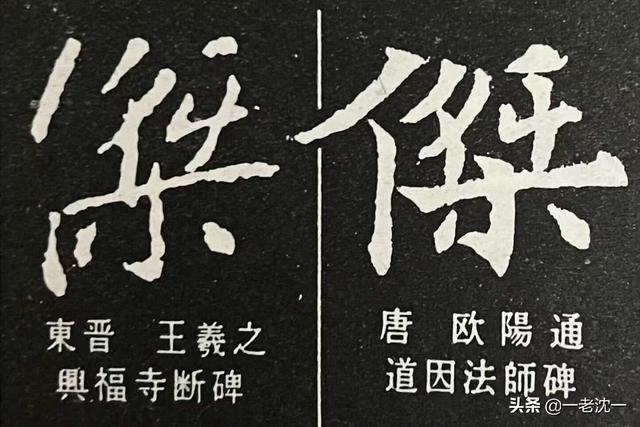 傑
東晋 王羲之
興福寺断碑
傑
唐 欧陽通
道因法師碑
头条 @一老沈一